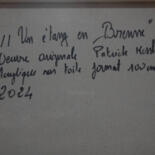 // Un étang en "Brenne"
Oeuvre originale Patrick
Acrylique sur toile format 100 cm
2024